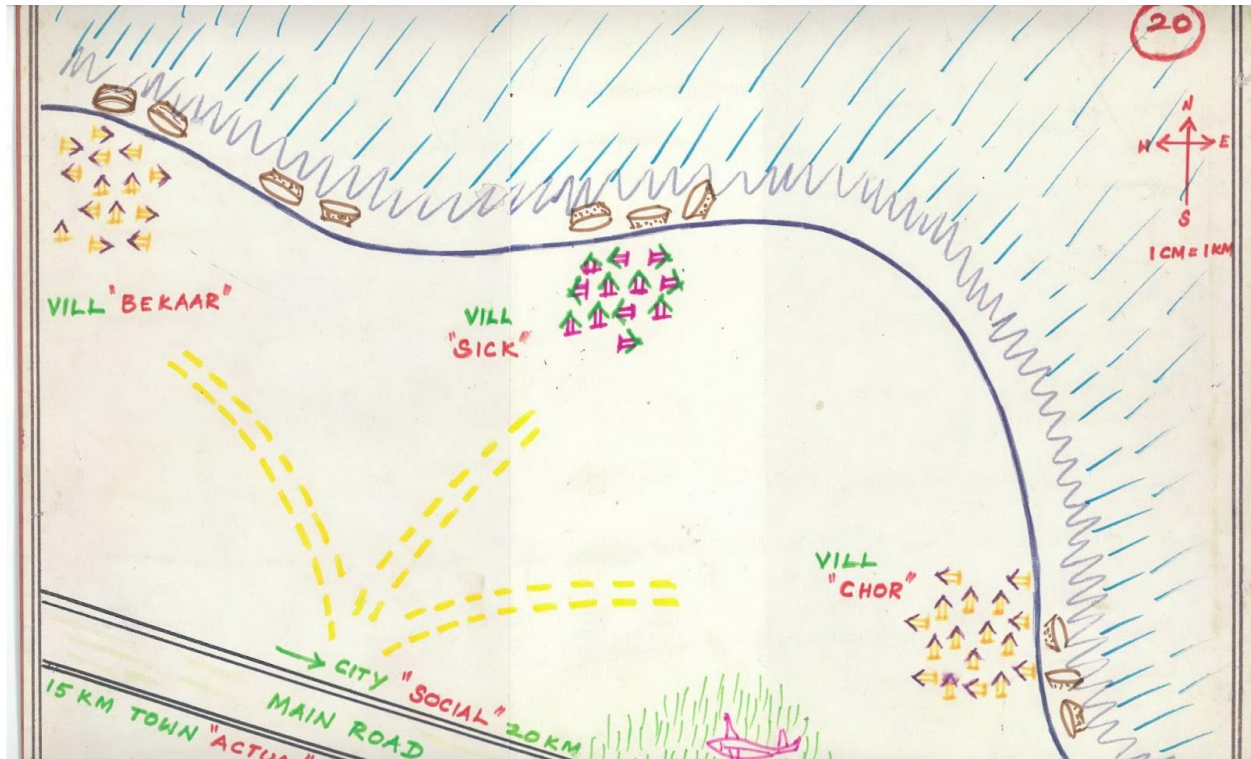 20
N
W E
S
1 CM = 1 KM
VILL "BEKAAR"
VILL
"SICK"
VILL
"CHOR"
→ CITY "SOCIAL" 20 KM
MAIN ROAD
15 KM TOWN "ACTUAL"